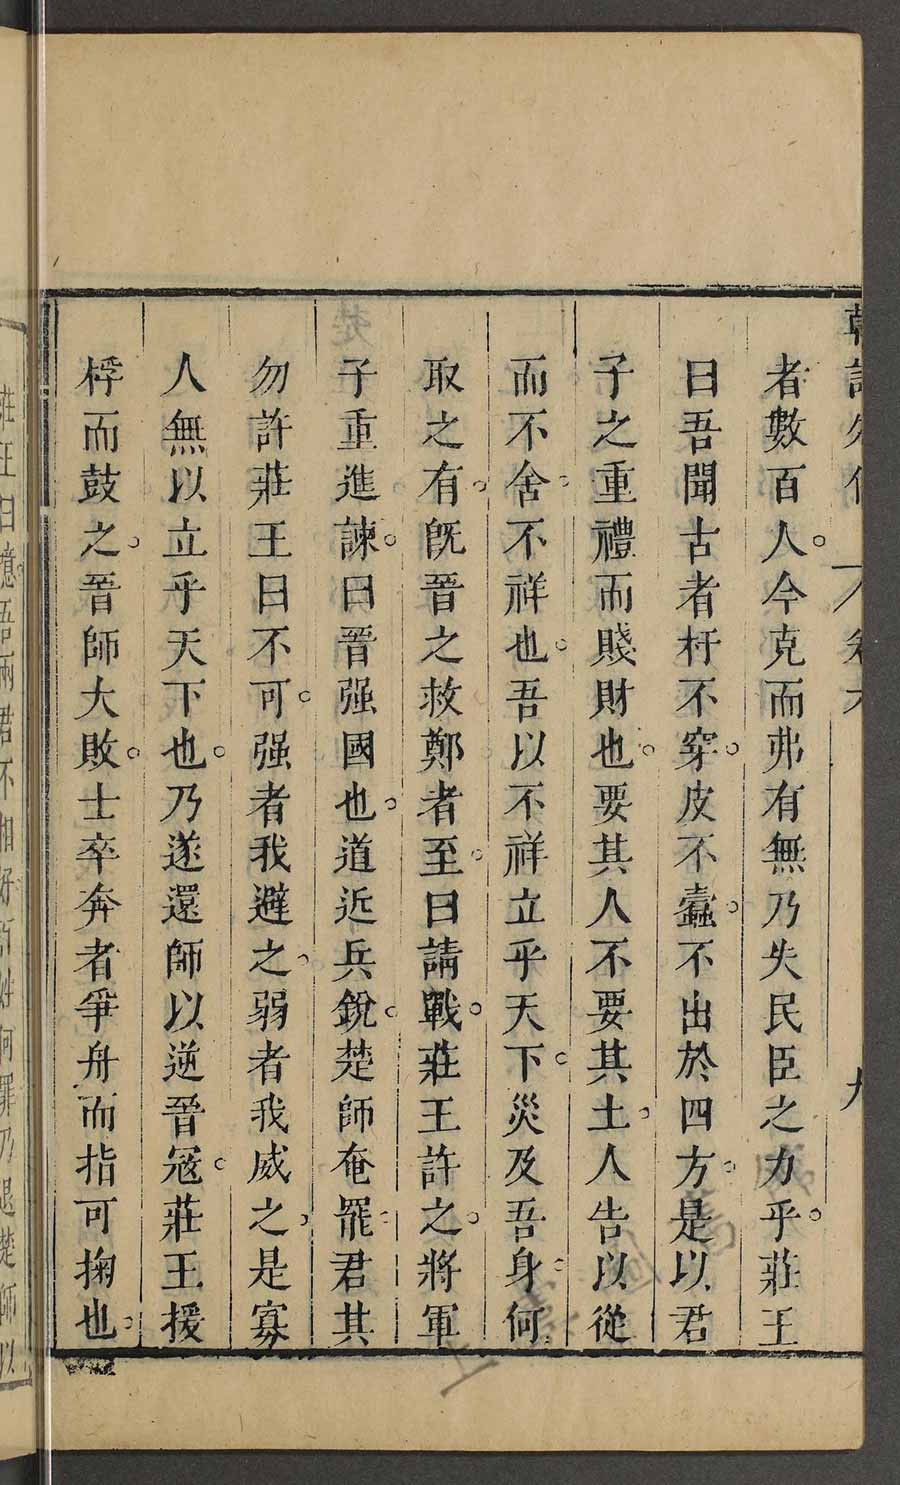 者數百人。今克而弗有無乃失民臣之力乎。莊王
曰吾聞古者杅不穿。皮不蠧。不出於四方。是以君
子之重禮而賤財也。要其人不要其土。人告以從
而不舍。不祥也。吾以不祥立乎天下。災及吾身。何
取之有。旣晉之救鄭者至。曰請戰。莊王許之。將軍
子重進諫。曰晉强國也。道近兵銳。楚師奄罷。君其
勿許莊王曰不可。强者我避之。弱者我威之。是寡
人無以立乎天下也。乃遂還師以逆晉寇。莊王援
桴而鼓之。晉師大敗。士卒奔者爭舟而指可掬也。
莊王曰噫吾兩君不相好百姓何罪乃退楚師以